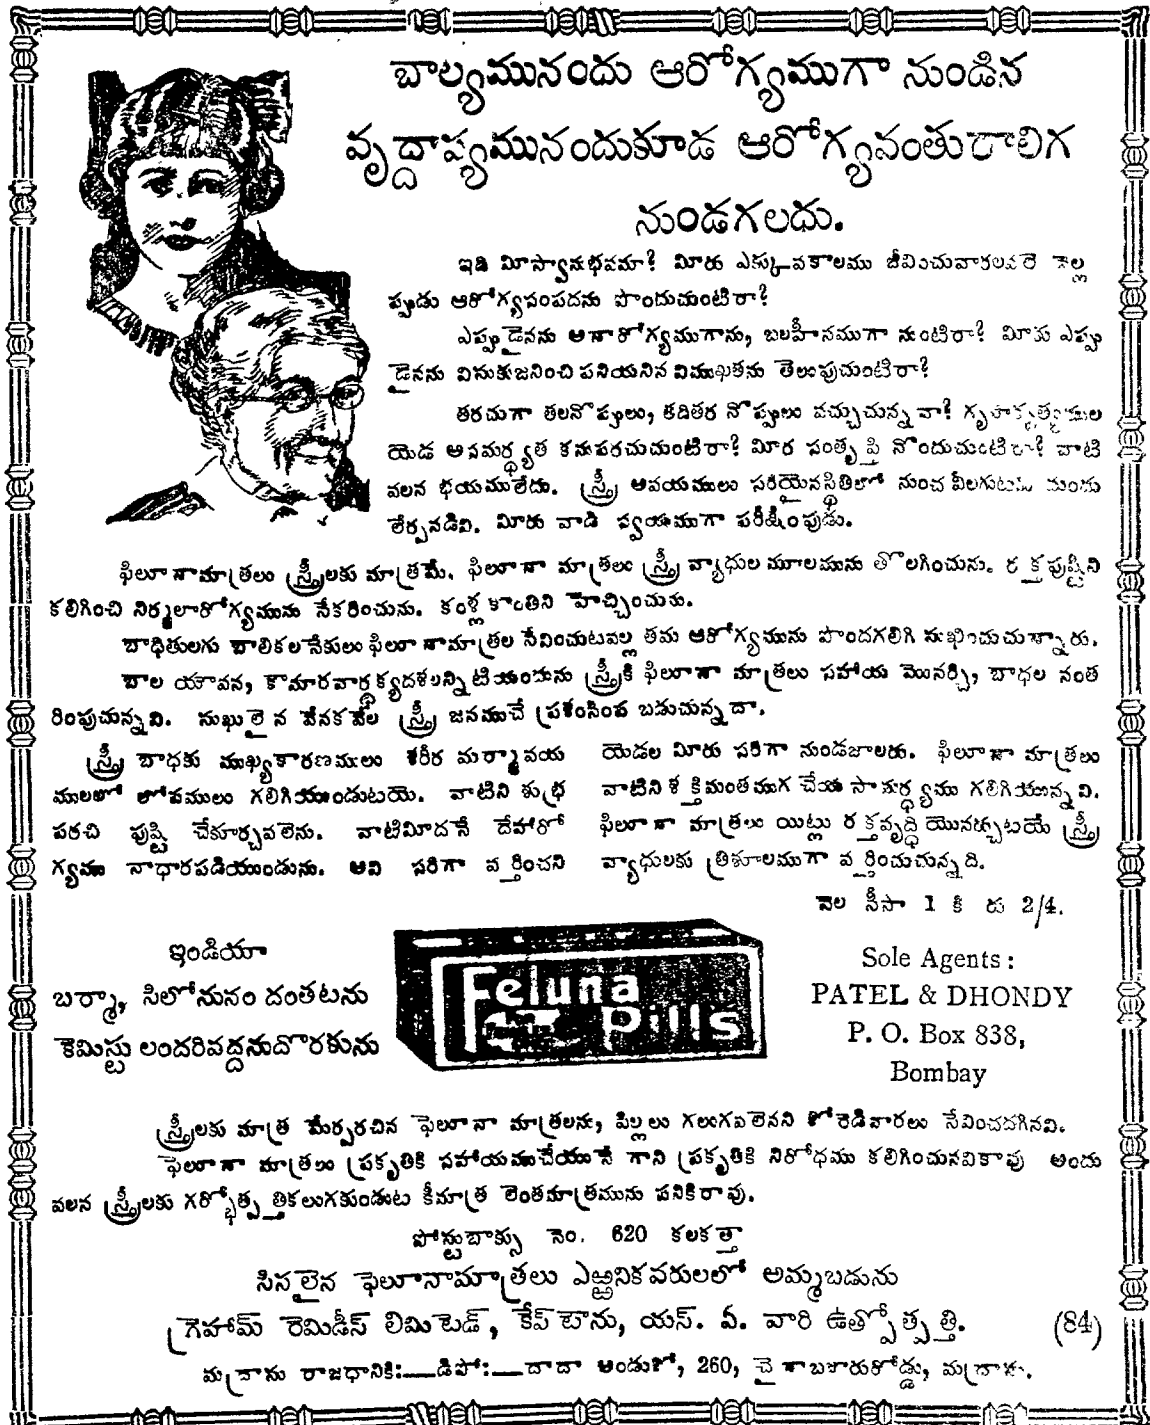 బాల్యమునందు ఆరోగ్యముగా నుండిన
వృద్దాప్యమునందుకూడ ఆరోగ్యవంతురాలిగ
నుండగలదు.
ఇది మీస్వానుభవమా? మీరు ఎక్కువకాలము జీవించువారలవలె
ప్పుడు ఆరోగ్యసంపదను పొందుచుంటిరా?
ఎప్పుడైనను అనారోగ్యముగాను, బలహీనముగా నుంటిరా? మీరు ఎప్పు
డైనను విసుకుజనించి పనియనిన విముఖతను తెలుపుచుంటిరా?
తరచుగా తలనొప్పులు, కడితర నొప్పులు వచ్చుచున్నవా? గృహకృత్యముల
యెడ అసమర్థ్యత కనుపరచుచుంటిరా? మీర సంతృప్తి నొందుచుంటిరా? వాటి
వలన భయములేదు. స్త్రీ అవయములు సరియైనస్థితిలో నుంచ వీలగుటకు మందు
లేర్పనడివి. మీరు వాడి స్వయముగా పరీక్షింపుడు.
ఫిలూనామాత్రలు స్త్రీలకు మాత్రమే. ఫిలూనా మాత్రలు స్త్రీ వ్యాధుల మూలమును తొలగించును. రక్తపుష్టిని
కలిగించి నిర్మలారోగ్యమును సేకరించును. కంళ్ల కాంతిని హెచ్చించును.
బాధితులగు బాలికలనేకులు ఫిలూనామాత్రల సేవించుటవల్ల తమ ఆరోగ్యమును పొందగలిగి సుఖించుచున్నారు.
బాల యౌవన, కౌమారవార్ధక్యదశలన్నిటియందును స్త్రీకి ఫిలూనా మాత్రలు సహాయ మొనర్చి, బాధల నంత
రింపుచున్నవి. సుఖులైన వేనకవేల స్త్రీ జనముచే ప్రశంసింప బడుచున్నదా.
స్త్రీ బాధకు ముఖ్యకారణములు శరీర మర్మావయ
ములలో లోపములు గలిగియుండుటయె. వాటిని శుభ్ర
పరచి పుష్టి చేకూర్చవలెను. వాటిమీదనే దేహారో
గ్యము నాధారపడియుండును. అవి సరిగా వర్తించని
యెడల మీరు సరిగా నుండజాలరు. ఫిలూనా మాత్రలు
వాటిని శక్తిమంతముగ చేయు సామర్థ్యము గలిగియున్నవి.
ఫిలూనా మాత్రలు యిట్లు రక్తవృద్ధి యొనర్చుటయే స్త్రీ
వ్యాధులకు త్రిశూలముగా వర్తించుచున్నది.
వెల సీసా 1 కి రు 2/4.
ఇండియా
బర్మా, సిలోనునం దంతటను
కెమిస్టు లందరివద్దనుదొరకును
Feluna
Pills
Sole Agents:
PATEL & DHONDY
P. O. Box 838,
Bombay
స్త్రీలకు మాత్ర మేర్పరచిన ఫెలూనా మాత్రలను, పిల్లలు గలుగవలెనని కోరెడివారలు సేవించదగినవి.
ఫెలూనా మాత్రలు ప్రకృతికి సహాయముచేయునే గాని ప్రకృతికి నిరోధము కలిగించునవికావు అందు
వలన స్త్రీలకు గర్భోత్పత్తికలుగకుండుట కీమాత్ర లెంతమాత్రమును పనికిరావు.
పోస్టుబాక్సు నెం. 620 కలకత్తా
సిసలైన ఫెలూనామాత్రలు ఎఱ్ఱనికవరులలో అమ్మబడును
గ్రెహామ్ రెమిడీస్ లిమిటెడ్, కేప్ టౌను, యస్. ఏ. వారి ఉత్పోత్పత్తి. (84)
మద్రాసు రాజధానికి:—డిపో:—దాదా అండుకో, 260, చైనాబజారురోడ్డు, మద్రాసు.